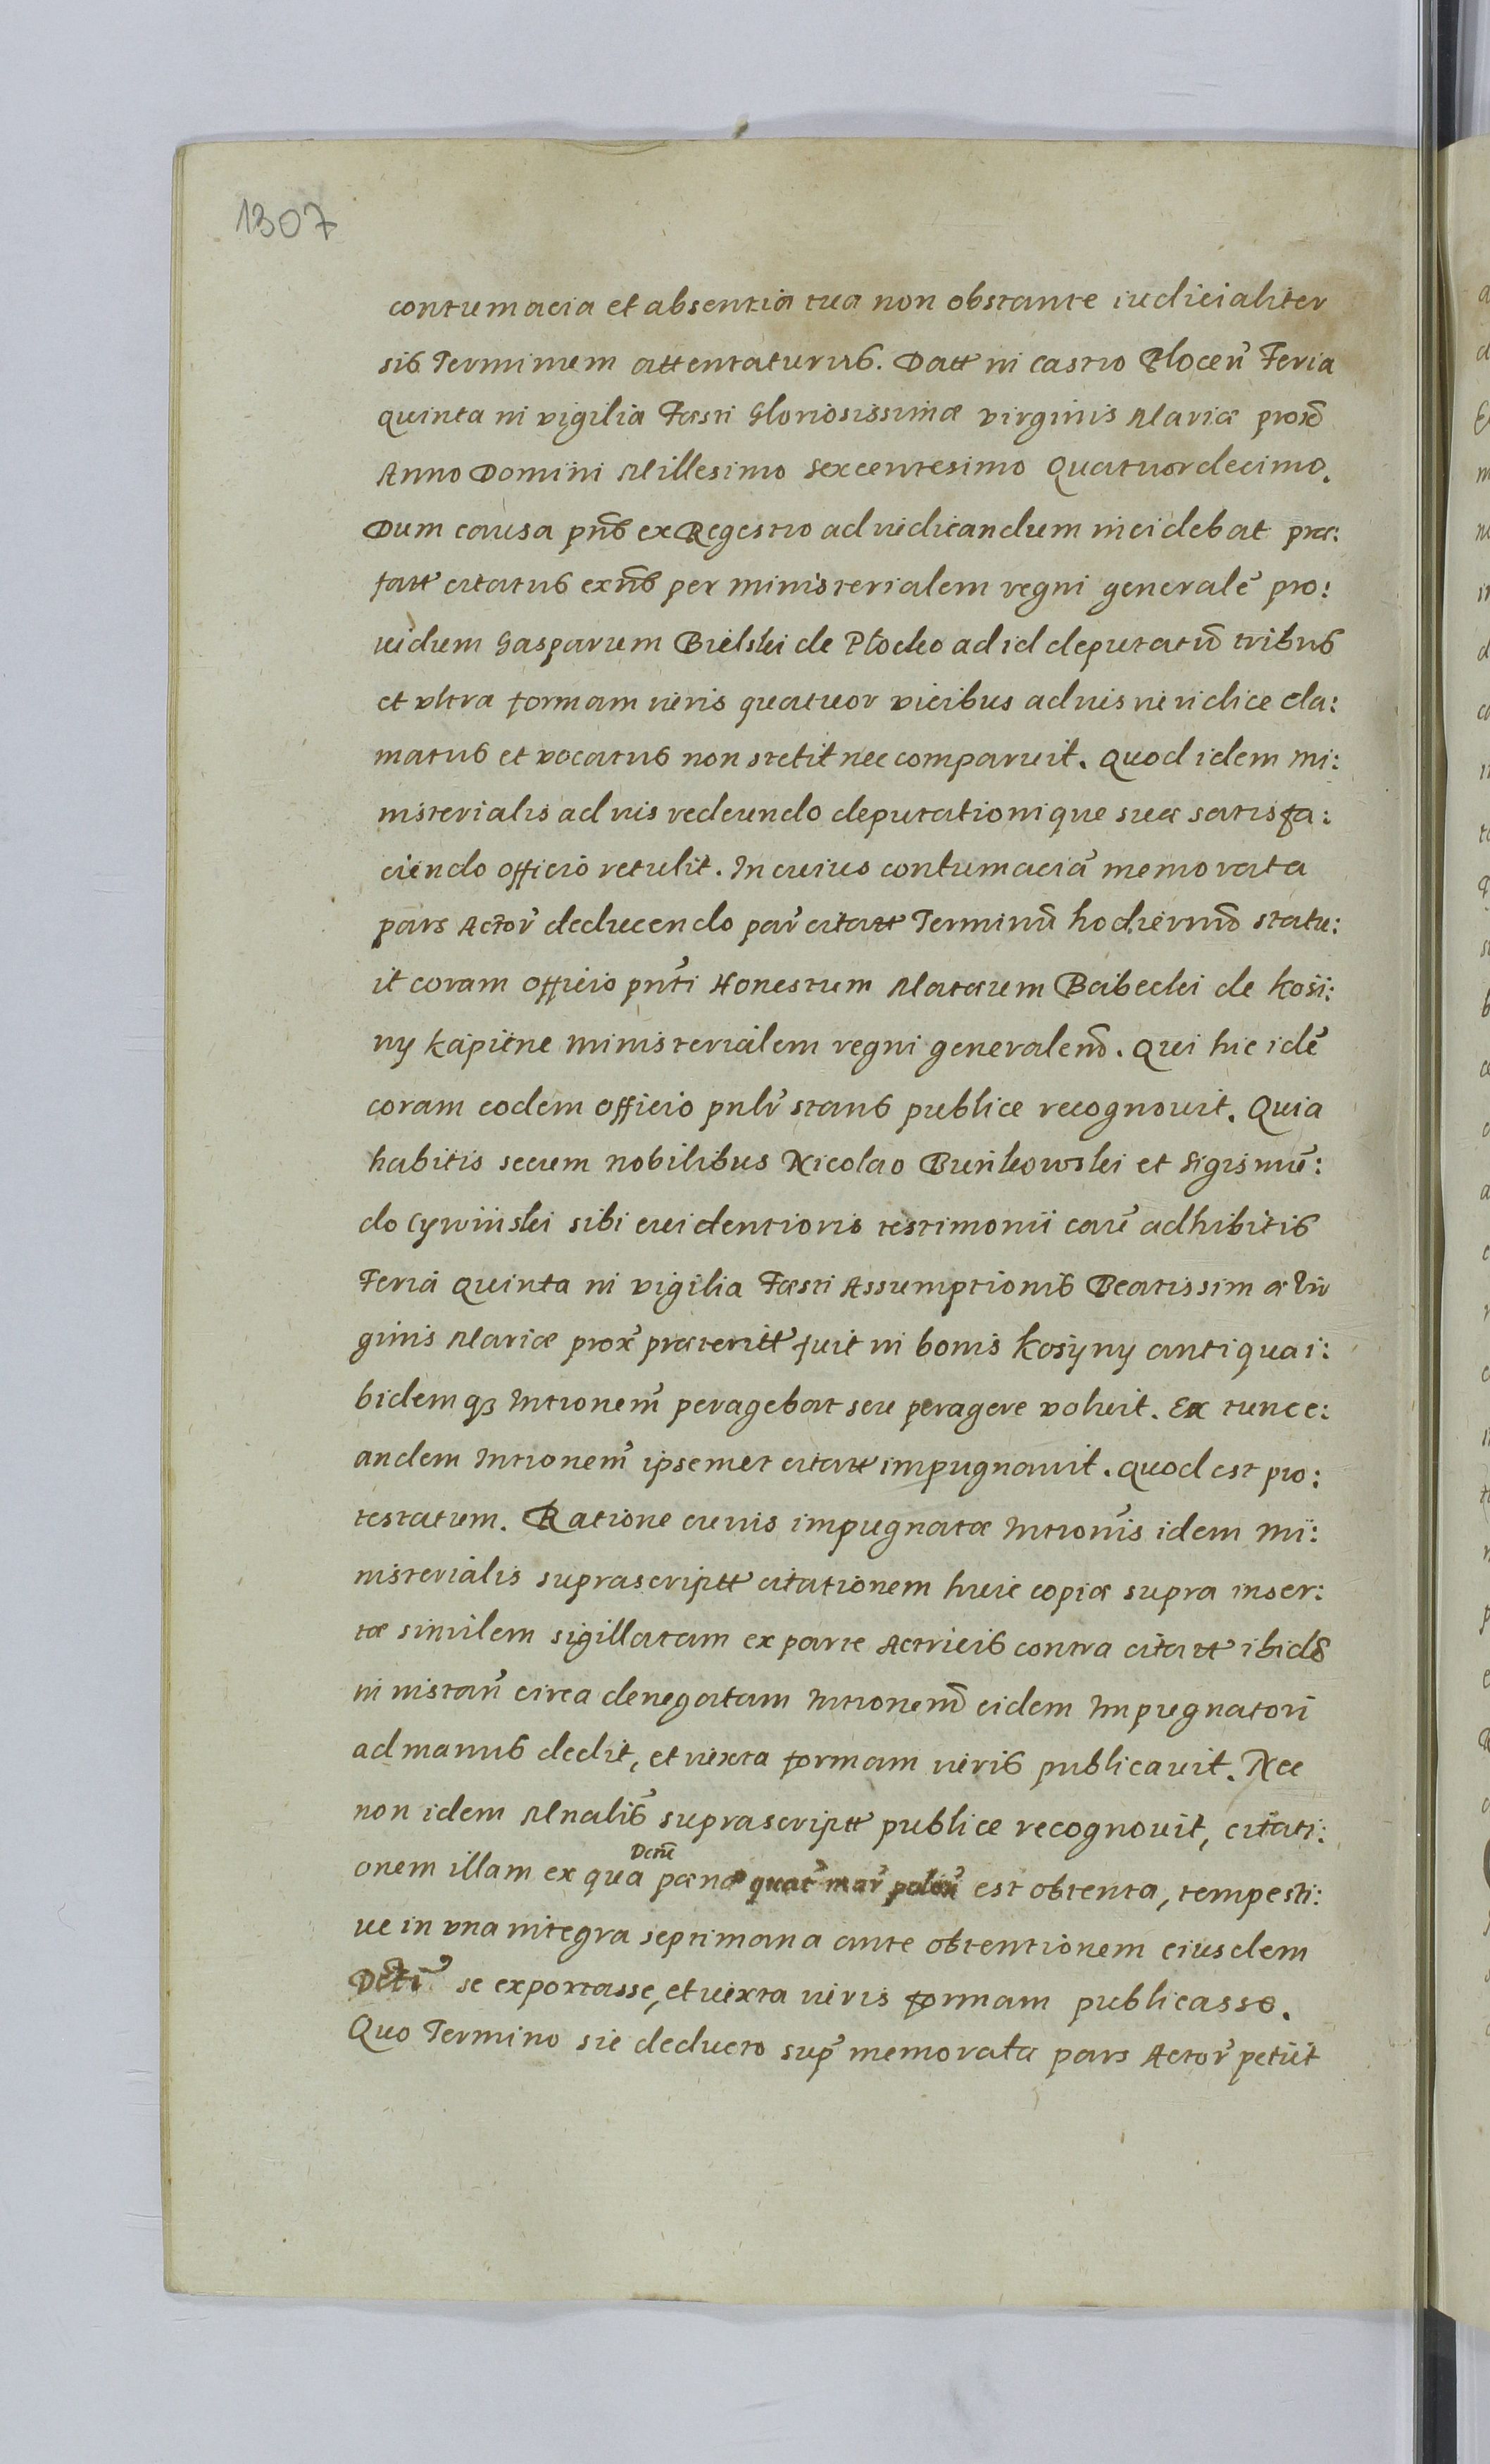 1307
contumacia et absentia tua non obstante iudicialiter
sib Terminum attentaturus. Datt in castro Plocen̄ Feria
quinta in vigilia Fæsti Gloriosissimæ virginis Mariæ prox̄
Anno Domini Millesimo Sexcentesimo Quatuordecimo.
Dum causa pn̄s ex Regestro ad iudicandum incidebat præ:
fatt citatus exn̄s per ministerialem regni generalē pro:
uidum Gasparum Bielski de Plocko ad id deputatū tribus
et vltra formam iuris quatuor vicibus ad uis iuridice cla:
matus et vocatus non stetit nec comparuit. Quod idem Mi:
nisterialis ad uis redeundo deputationique suæ satisfa:
ciendo officio retulit. In cuius contumaciā memorata
pars Actor̄ deducendo par̄ citatt Terminū hodiernū statu:
it coram officio pn̄ti Honestum Matæum Babecki de Kosii:
ny Kapiine ministerialem regni generalem̄. Qui hic idē
coram eodem officio pnlr̄ stans publice recognouit. Quia
habitis secum nobilibus Nicolao Bunkowski et Sigismū:
do Cywiński sibi euidentioris testimonii cauē adhibitis
Feria Quinta in vigilia Fæsti Assumptionis Beatissimæ Vir
ginis Mariæ prox̄ præteritt fuit in bonis Kosyny antiqua i:
bidemq₃ Intronem̄ peragebat seu peragere voluit. Ex tunc e:
andem Intronem̄ ipsemet citatt impugnauit. Quod est pro:
testatum. Ratione cuius impugnatæ Intronīs idem Mi:
nisterialis suprascriptt citationem huic copiæ supra inser:
tæ similem sigillatam ex parte Actricis contra citatt ibidē
in instan̄ circa denegatam Intronem̄ eidem Impugnatori
ad manus dedit, et iuxta formam iuris publicauit. Nec
non idem Mnalis̄ suprascriptt publice recognouit, citati:
onem illam ex qua Dcrū pæna quat̄ mar̄ polon̄ est obtenta, tempesti:
ue in vna integra septimana ante obtentionem eiusdem
Dctī se exportasse, et iuxta iuris formam publicasse.
Quo Termino sic deducto sup̄ memorata pars Actor̄ petiit